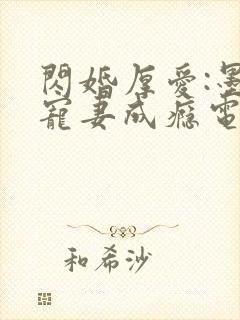 閃婚厚愛:墨
寵妻成癮電
和希沙